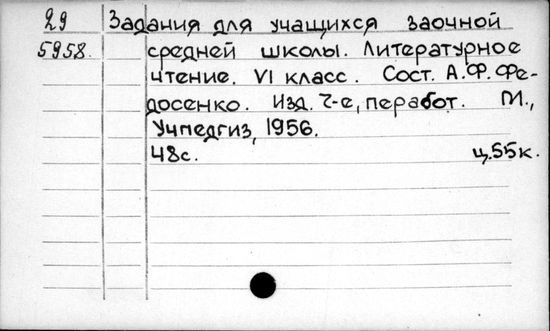 29 Задания для учащихся заочной
5958. средней школы. Литературное
чтение. VI класс. Сост. А.Ф.Фе-
досенко. Изд. 7-е, перабот. М.,
Учпедгиз, 1956.
48с. ц.55к.